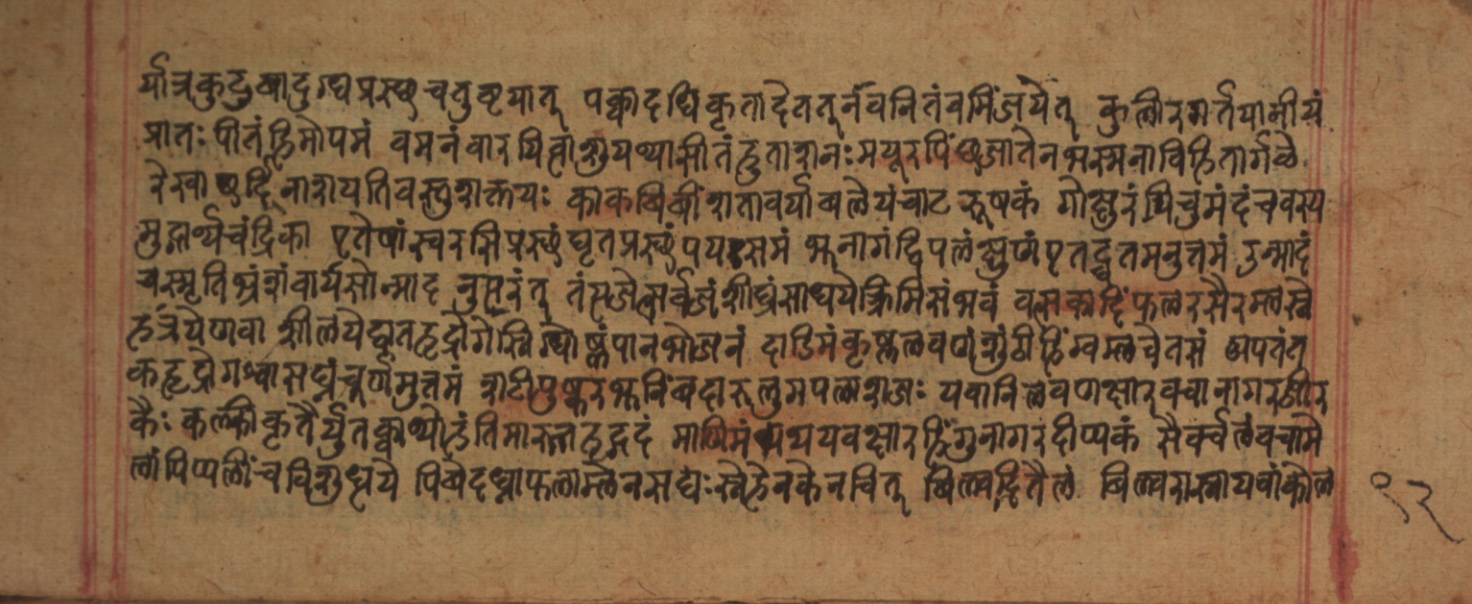 र्यात्रकुदुवादुग्धप्रस्छचतुष्टयात् पक्वादधिकृतादेततुर्नवनितंवमिंजयेत् कुलीरमर्तयामीयं
प्रातः पीतंहिमोपमं वमनंवारयित्वाशुपथ्यासीतंहुताशनः मयूरपिंछजातेनभस्मनाविहितार्गले
रेखाछर्दिंनाशयतिवस्तुशक्तयः काकबिंबीशतावर्याबलेयंवाटरूषकं गोक्षुरंपिचुमंदंचवस्य
मुद्गार्थचंद्रिका एतेषांस्वरसिप्रस्छंघृतप्रस्छंपयःसमं नागंद्विपलंक्षुण्णंएतद्घृतमनुत्तमं उन्मादं
चस्मृतिभ्रंशंवार्यसोन्माद नुसरंत् तंसृजेत्सर्वजंशीघ्रंसाधयेत्क्रिमिसंभवं वत्सकादिंफलरसैरम्लस्ने
हत्रयेणवा शीलयेद्घृतहृद्रोगेस्निग्धोष्णंपानभोजनं दाडिमंकृष्णलवणंशुंठीहिंग्वम्लवेतसं अपतंत्र
कहृद्रोगश्वासघ्नंचूर्णमुत्तमं शटीपुष्कर निंबदारुलुमपलाशजः यवानिलवणक्षारवचानागरठीर
कैः कल्कीकृतैर्युतक्वाथोहंतिमारुतहृद्गदं माणिमंथ यवक्षारहिंगुनागरदीप्यकं सैवर्चलंवचामे
लांपिप्पलींचविशुद्धये पिबेदध्नाफलाम्लेनसद्यःस्नेहेनकेनचित् बिल्वादितैलं बिल्वरास्नायवांकोल
९२